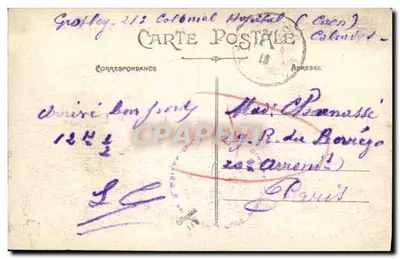 21e Colonial Hopital (Caen)
Calvados
CARTE POSTALE
CORRESPONDANCE
ADRESSE
arrivé bon port
12H 1/2
LC
Mad. Charnassé
29. R. du Borrégo
20e Arrondt
Paris
CPARAMA